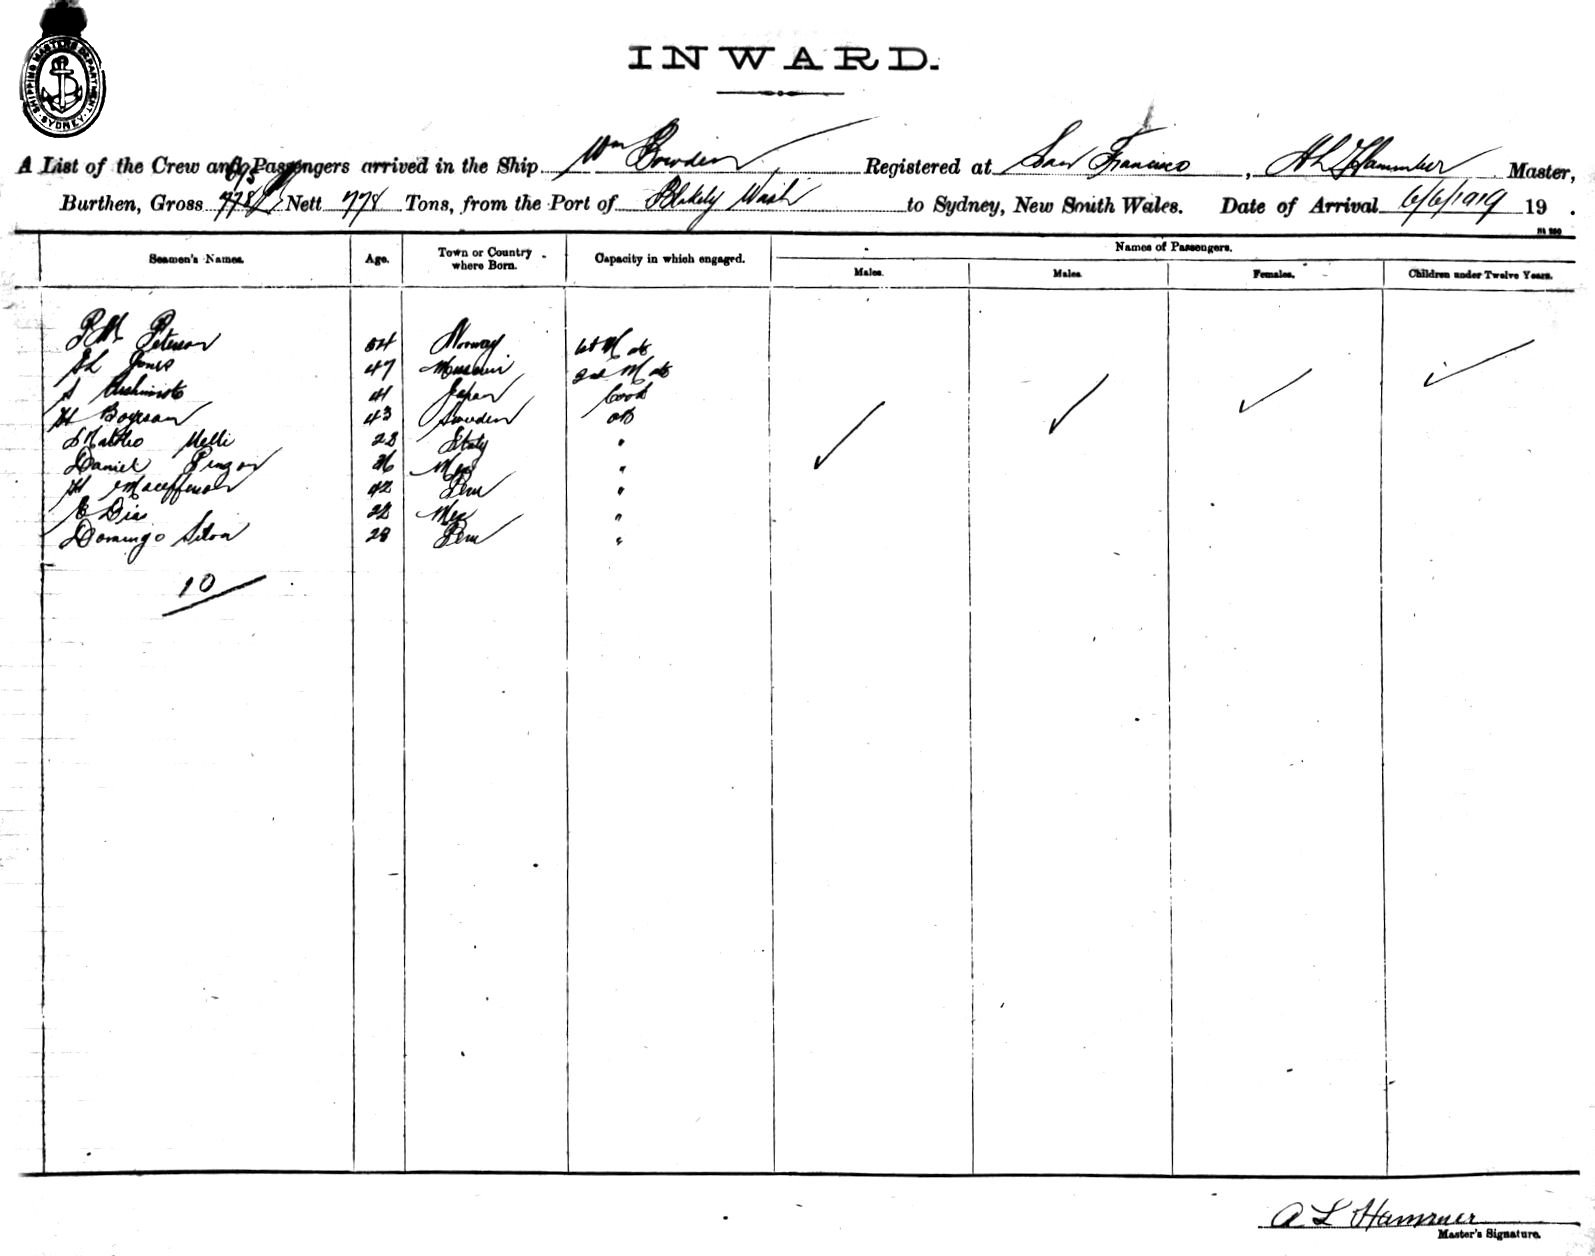 SHIPPING MASTERS DEPARTMENT. SYDNEY
INWARD.
A List of the Crew and Passengers arrived in the Ship Wm Bowden Registered at San Francisco, Master,
Burthen, Gross Nett 778 Tons, from the Port of Blakely Wash to Sydney, New South Wales. Date of Arrival 6/6/1919 19 .
Seamen's Names. Age. Town or Country where Born. Capacity in which engaged. Names of Passengers.
Males. Males. Females. Children under Twelve Years.
Peterson 54 Norway 1st Mate
Jones 47 2nd Mate
S 41 Japan Cook
H 43 Sweden AB
Melli 28 Italy "
Daniel 36 Mex "
H 42 Peru "
E Dias 22 Mex "
Domingo Silva 28 Peru "
10
A L Hammer
Master's Signature.